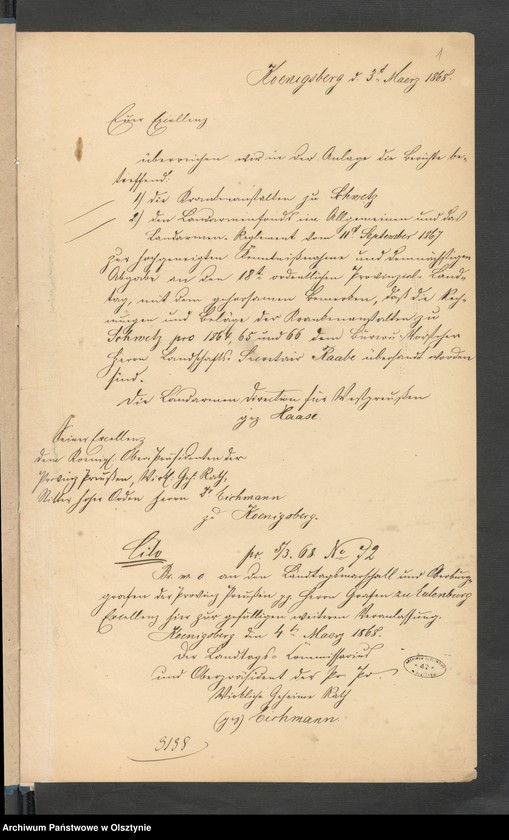 1
Koenigsberg d. 3t Maerz 1868.
Euer Excellenz
überreichen wir in der Anlage die Berichte be-
treffend:
1) die Krankenanstalten zu Schwetz
2) den Landarmenfonds im Allgemeinen und das
Landarmen-Reglement vom 11t September 1867
zur hochgeneigten Kenntnißnahme und demnächstigen
Abgabe an den 18t. ordentlichen Provinzial-Land-
tag, mit dem gehorsamen Bemerken, daß die Rech-
nungen und Beläge der Krankenanstalten zu
Schwetz pro 1864, 65 und 66 dem Büreau-Vorsteher
Herrn Landschafts-Secretair Raabe übersandt worden
sind.
Die Landarmen Direction für Westpreußen
gez Haase
Seiner Excellenz
dem Koenigl. Ober-Präsidenten der
Provinz Preußen, Wirkl. Geh. Rath,
Ritter hoher Orden Herrn Dr Eichmann
zu Koenigsberg.
Cito pr. 5/3. 68 No 72
an den Landtagsmarschall und Oberburg-
grafen der Provinz Preußen pp. Herrn Grafen zu Eulenburg
Excellenz hier zur gefälligen weiteren Veranlassung.
Koenigsberg den 4ten Maerz 1868.
Der Landtags-Commissarius
und Oberpräsident der Pr. Pr.
Wirkliche Geheime Rath
(gez) Eichmann.
3138
Archiwum Państwowe w Olsztynie